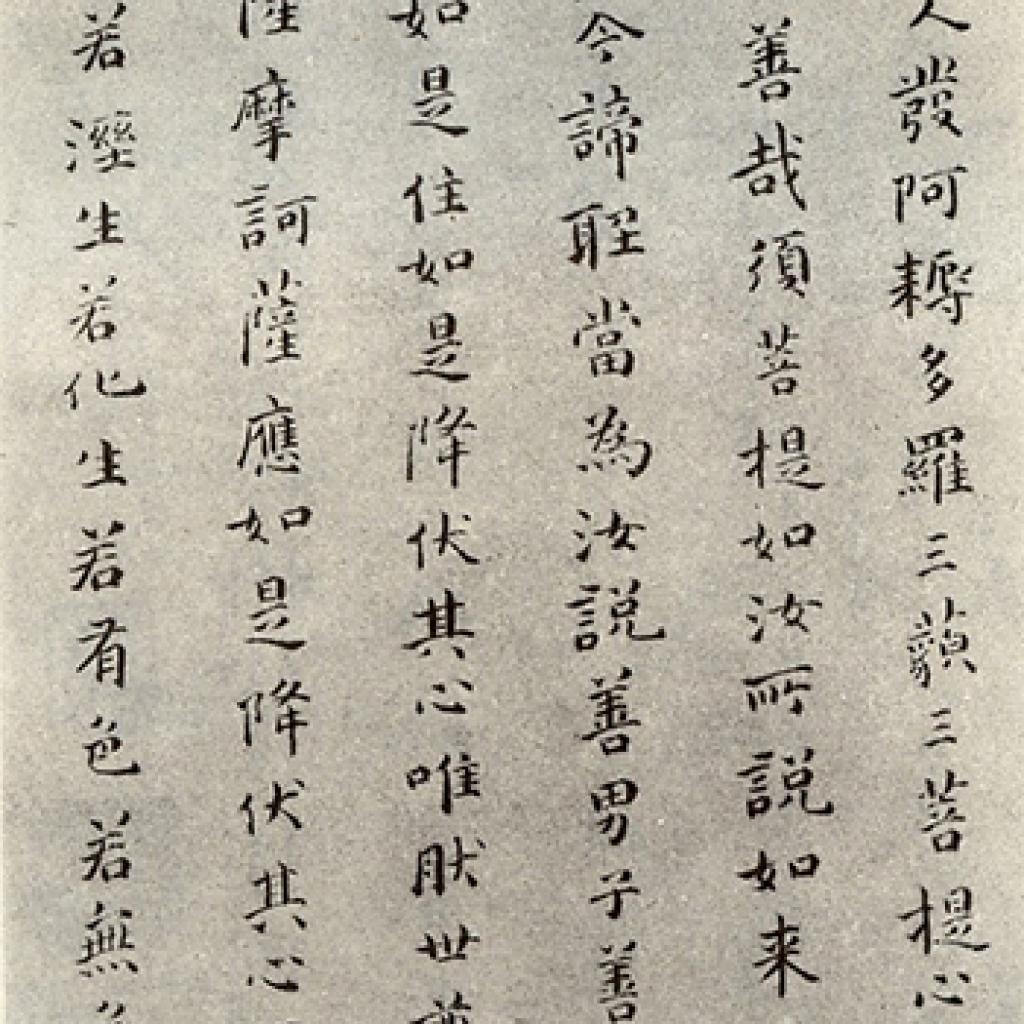 人發阿耨多羅三藐三菩提心
善哉須菩提如汝所說如来
今諦聽當為汝說善男子善
如是住如是降伏其心唯然世尊
薩摩訶薩應如是降伏其心
若溼生若化生若有色若無色